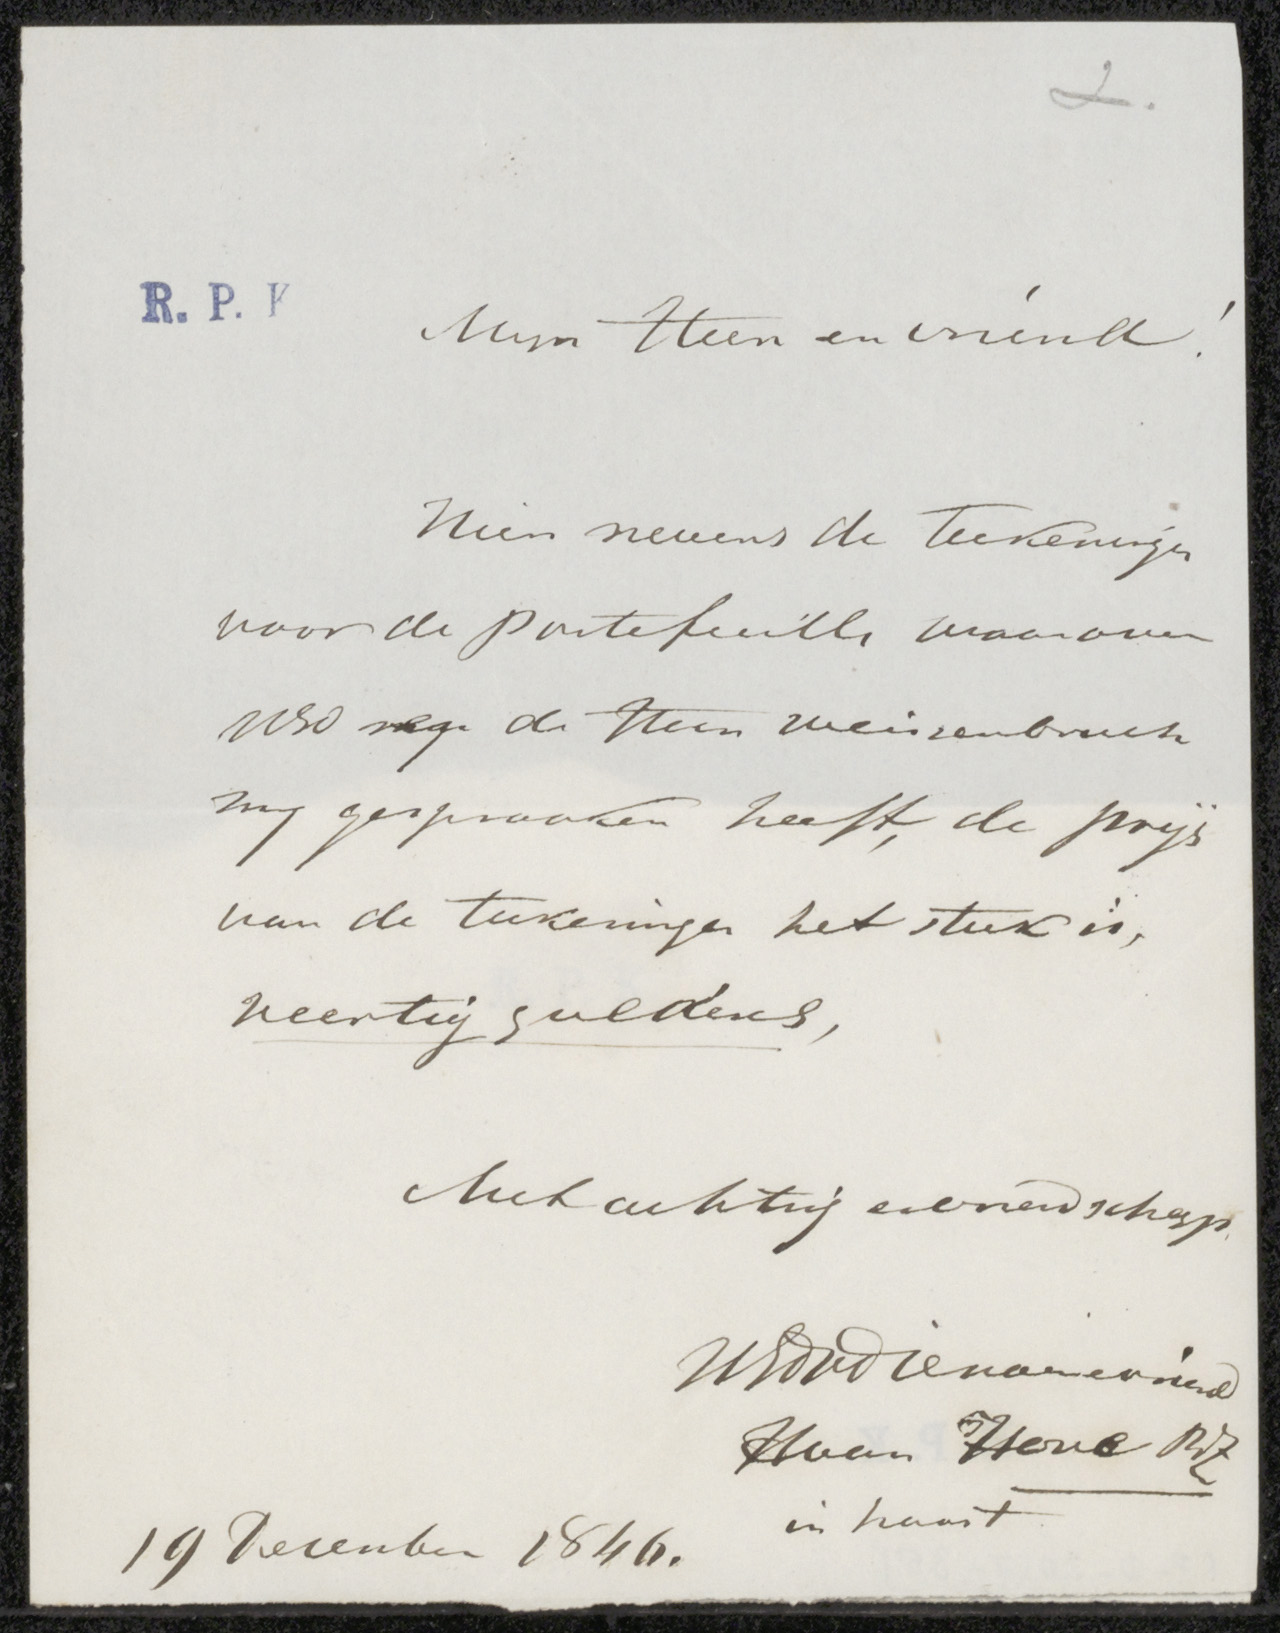 2.
R. P. K
Myn Heer en vriend!
Hier nevens de teekeninge
voor de portefeuille waarover
UEd de Heer Weissenbruch
my gesprooken heeft, de prijs
van de teekeninge het stuk is,
veertig guldens,
Met achting en vriendschap.
UEdDWDienaar en vriend
H van Hove BZ
in haast
19 December 1846.